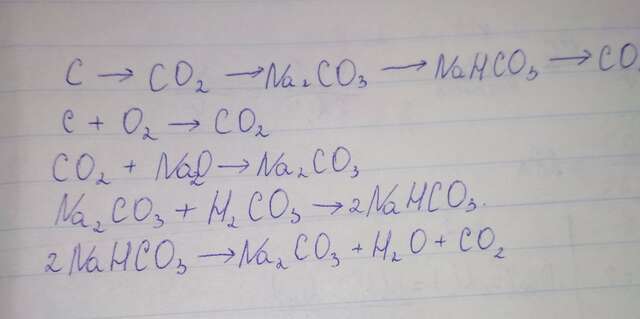 C → CO₂ → Na₂CO₃ → NaHCO₃ → CO
C + O₂ → CO₂
CO₂ + Na₂O → Na₂CO₃
Na₂CO₃ + H₂CO₃ → 2NaHCO₃.
2NaHCO₃ → Na₂CO₃ + H₂O + CO₂